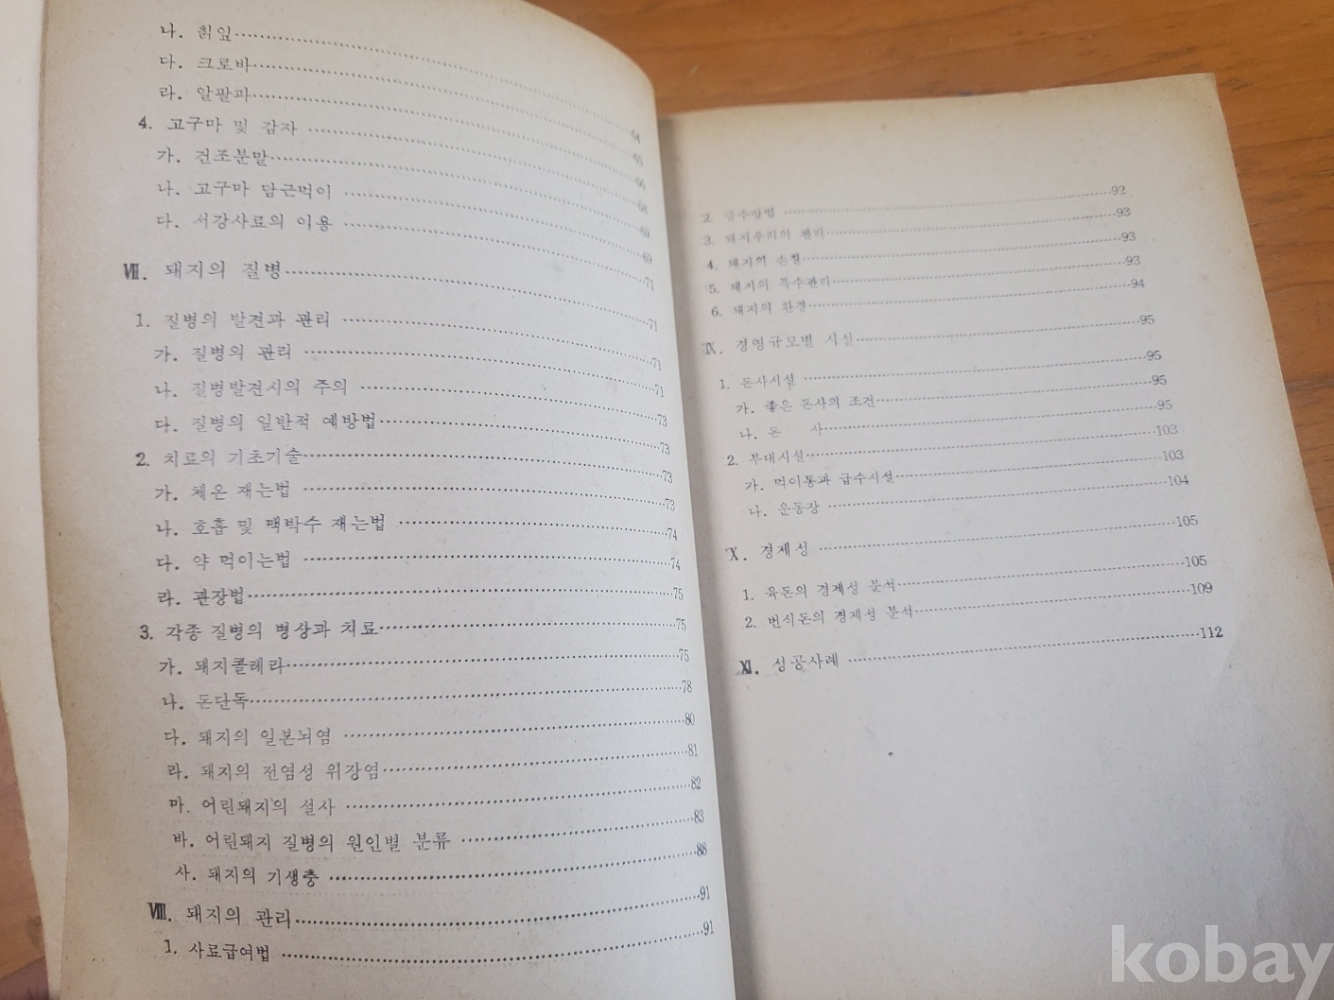 나. 칡잎 64
다. 크로바 65
라. 알팔파 66
4. 고구마 및 감자 68
가. 건조분말 69
나. 고구마 담근먹이 69
다. 서강사료의 이용 71
Ⅶ. 돼지의 질병 71
1. 질병의 발견과 관리 71
가. 질병의 관리 71
나. 질병발견시의 주의 73
다. 질병의 일반적 예방법 73
2. 치료의 기초기술 73
가. 체온 재는법 73
나. 호흡 및 맥박수 재는법 74
다. 약 먹이는법 74
라. 관장법 75
3. 각종 질병의 병상과 치료 75
가. 돼지콜레라 75
나. 돈단독 78
다. 돼지의 일본뇌염 80
라. 돼지의 전염성 위장염 81
마. 어린돼지의 설사 82
바. 어린돼지 질병의 원인별 분류 83
사. 돼지의 기생충 88
Ⅷ. 돼지의 관리 91
1. 사료급여법 91
2. 급수방법 92
3. 돼지우리의 관리 93
4. 돼지의 손질 93
5. 돼지의 특수관리 93
6. 돼지의 환경 94
Ⅸ. 경영규모별 시설 95
1. 돈사시설 95
가. 좋은 돈사의 조건 95
나. 돈 사 95
2. 부대시설 103
가. 먹이통과 급수시설 103
나. 운동장 104
Ⅹ. 경제성 105
1. 육돈의 경제성 분석 105
2. 번식돈의 경제성 분석 109
Ⅺ. 성공사례 112
kobay